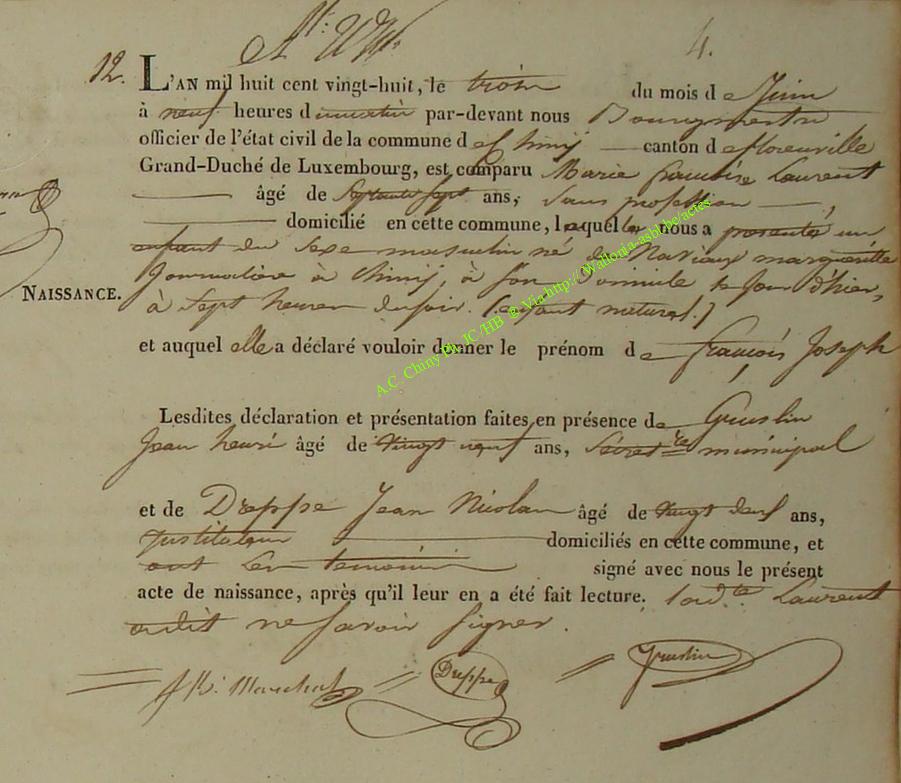 4.
12. L'AN mil huit cent vingt-huit, le trois du mois de Juin
à neuf heures du matin par-devant nous Bourgmestre
officier de l'état civil de la commune de Chiny canton de florenville
Grand-Duché de Luxembourg, est comparu Marie françoise Laurent
âgé de Septante Sept ans, Sans profession,
domicilié en cette commune, laquelle nous a présenté un
enfant du Sexe masculin né de Naviaux margueritte
Journalière à Chiny, à Son domicile le Jour d'hier,
NAISSANCE.
à Sept heures du soir. (enfant naturel.)
et auquel elle a déclaré vouloir donner le prénom de françois Joseph
Lesdites déclaration et présentation faites en présence de Gruslin
Jean henri âgé de vingt neuf ans, Secret.re municipal
et de Dreppe Jean Nicolas âgé de vingt deux ans,
Instituteur domiciliés en cette commune, et
ont les temoins signé avec nous le présent
acte de naissance, après qu'il leur en a été fait lecture. lad.te Laurent
a dit ne Savoir Signer.
Marechal Dreppe Gruslin
A.C. Chiny Ph. JC/HB @ Via http://Wallonia-asbl.be/actes